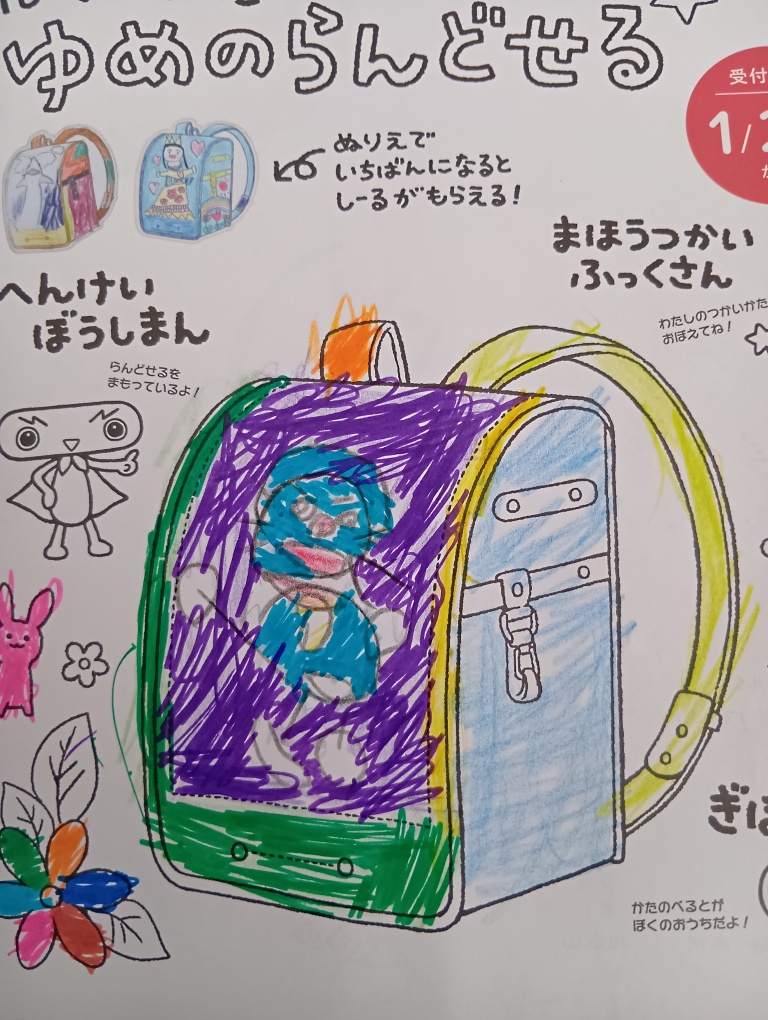 ゆめのらんどせる
受付
1/2
ぬりえで
いちばんになると
しーるがもらえる!
まほうつかい
ふっくさん
わたしのつかいかた
おぼえてね!
へんけい
ぼうしまん
らんどせるを
まもっているよ!
ぎ
かたのべるとが
ぼくのおうちだよ!